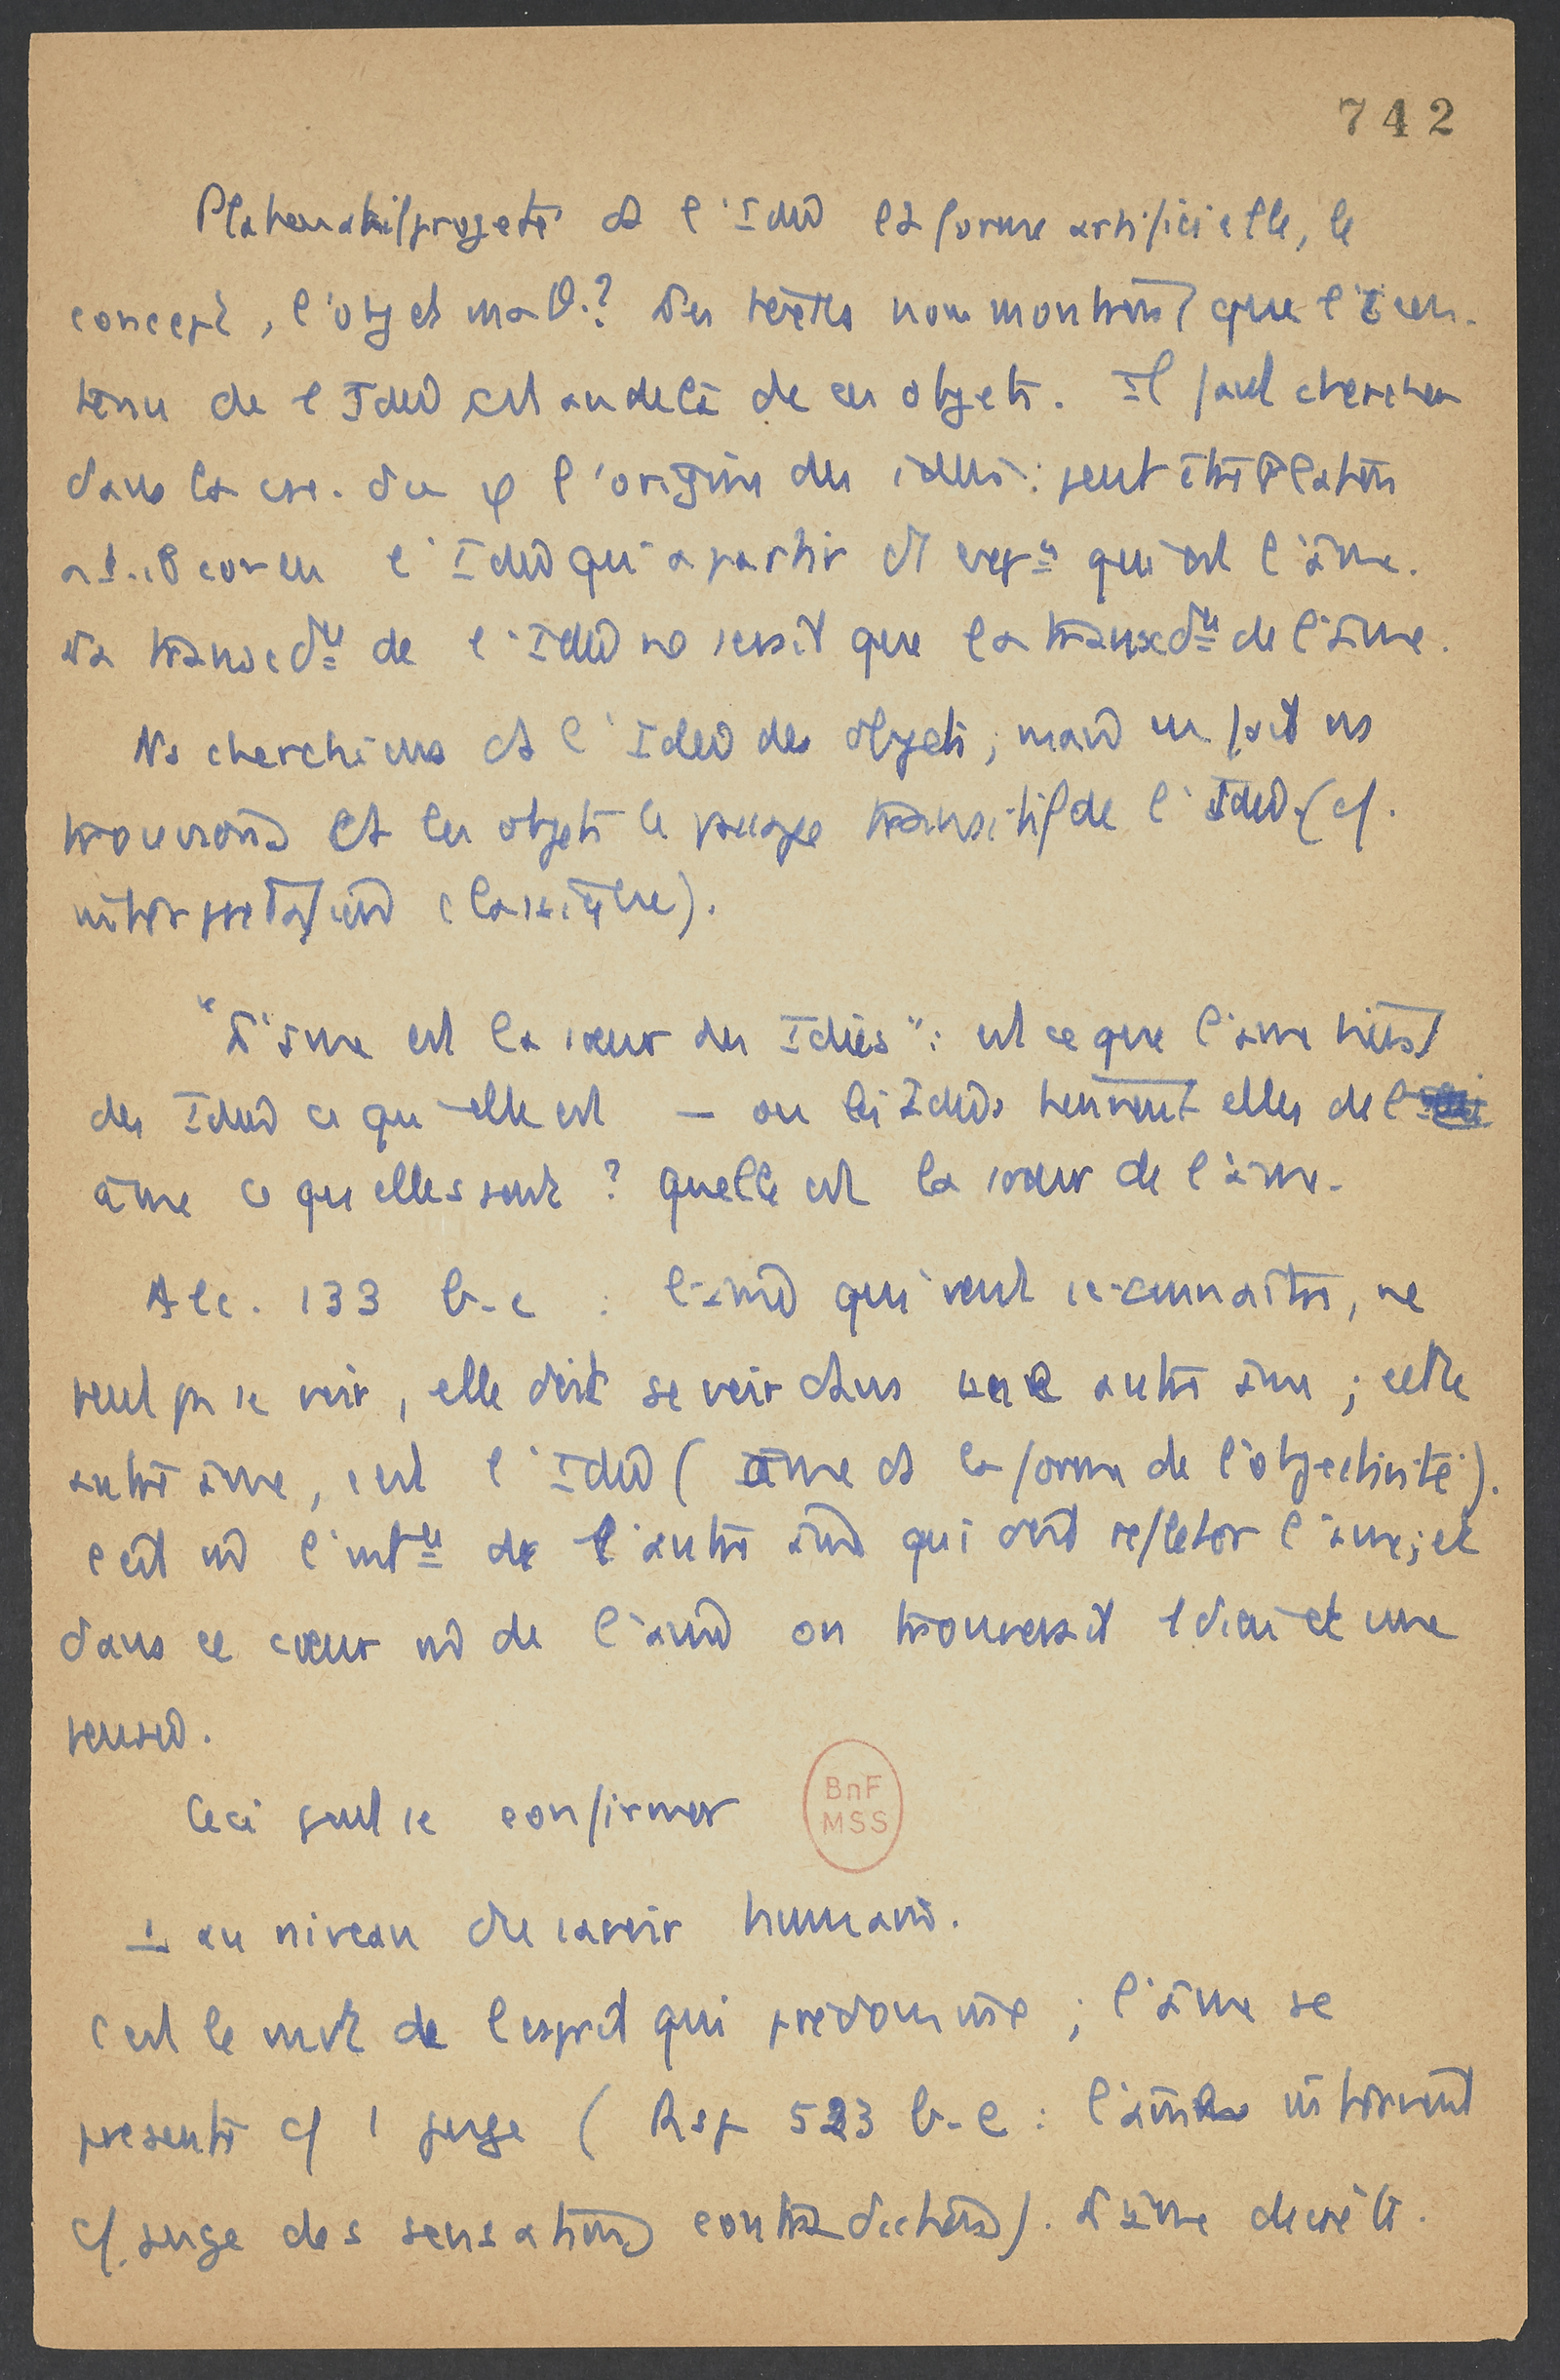 742
Platon a t il projeté ds l'Idée la forme artificielle, le
concept, l'objet math.? Les textes nous montrent que le con-
tenu de l'Idée est au delà de ces objets. Il faut chercher
dans la du φ l'origine des idées: peut être Platon
a t-il conçu l'Idée qu'à partir d' qu'est l'âme.
La transcdce de l'Idée ne serait que la transcdce de l'âme.
Ns cherchions ds l'Idée des objets, mais en fait ns
trouvions ds les objets le passage transitif de l'Idée (cf.
interprétation classique).
"L'âme est la sœur des Idées": est ce que l'âme tient
des Idées ce qu'elle est — ou les Idées tiennent elles de l'
âme ce qu'elles sont? quelle est la sœur de l'âme.
Alc. 133 b-c : l'âme qui veut se connaître, ne
peut pas se voir, elle doit se voir dans une autre âme; cette
autre âme, c'est l'Idée (âme ds la forme de l'objectivité).
c'est de l'autre âme qui doit refléter l'âme; et
dans ce cœur de l'âme on trouverait 1 dieu et une
pensée.
Ceci peut se confirmer
BnF
MSS
1 au niveau du savoir humain.
C'est le mvt de l'esprit qui prédomine; l'âme se
présente c/ 1 juge (Rep 523 b-e: l'âme intervient
c/ juge des sensations contradictoires). L'âme décrète.